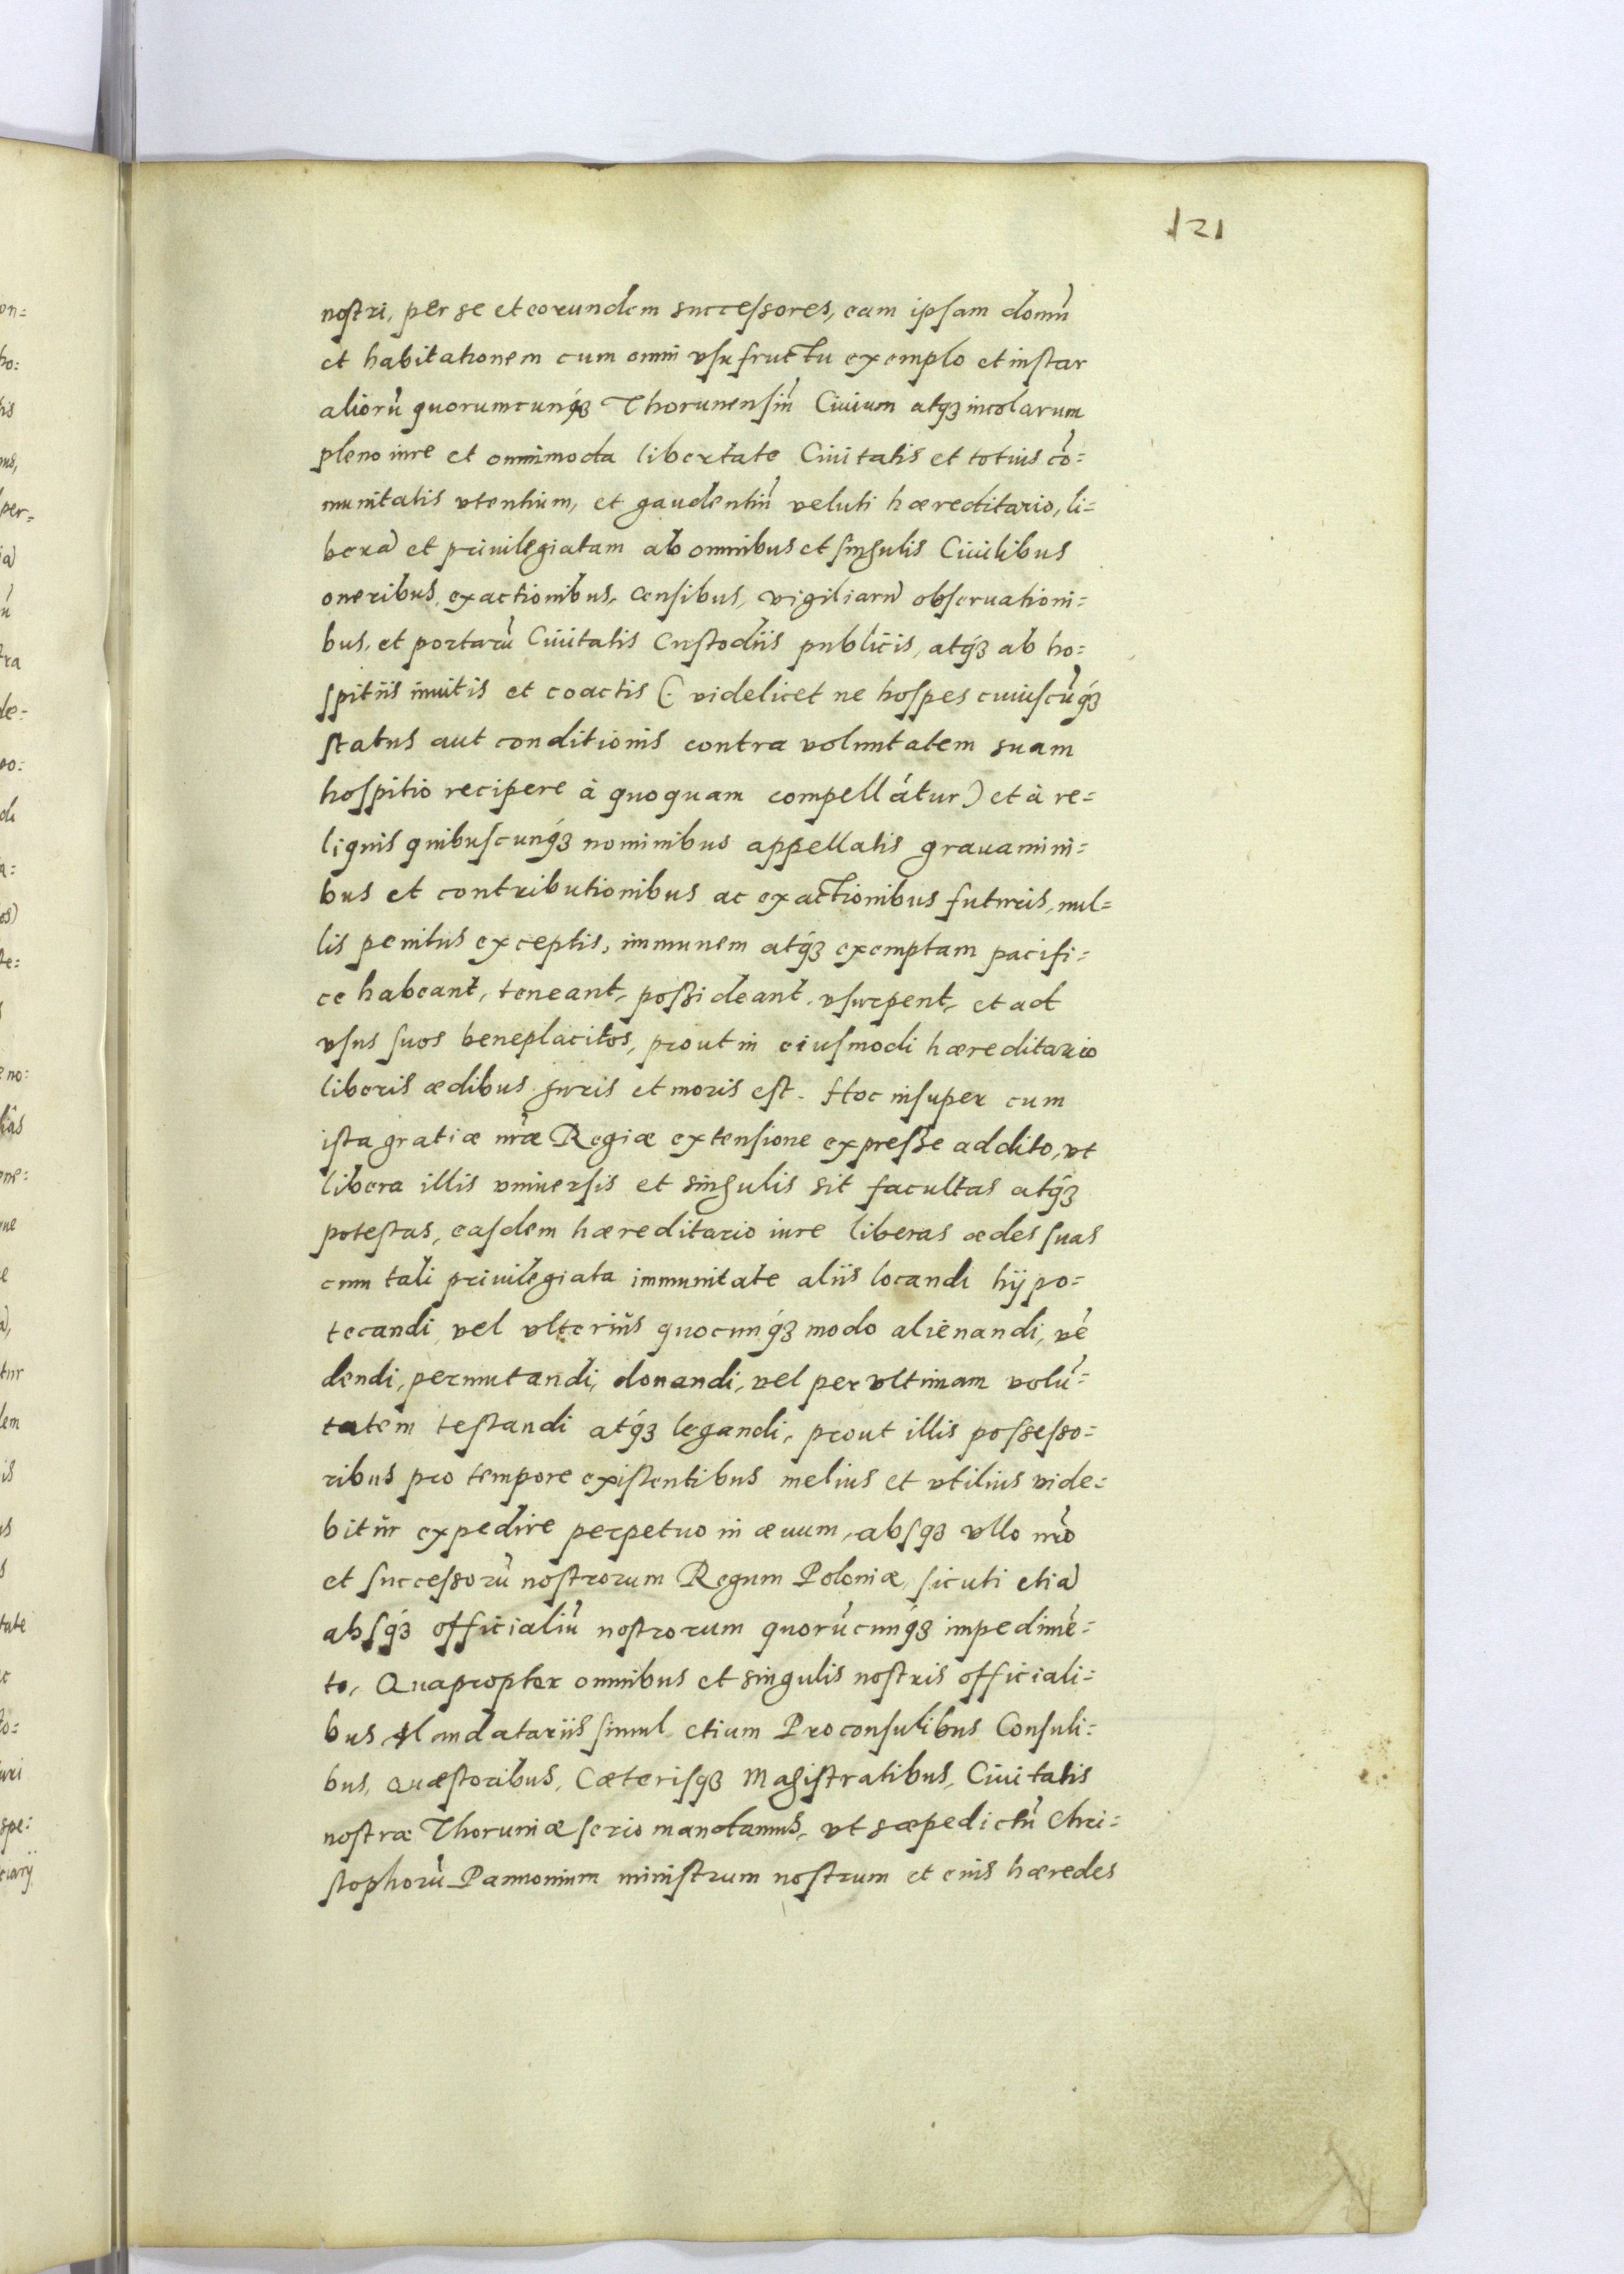 121
nostri, per se et eorundem successores, eam ipsam domū
et habitationem cum omni vsufructu exemplo et instar
aliorū quorumcunq́ʒ Thorunensiū Ciuium atqʒ incolarum
pleno iure et omnimoda libertate Ciuitatis et totius cō=
munitatis vtentium, et gaudentiū veluti hæreditario, li=
berā et priuilegiatam ab omnibus et singulis Ciuilibus
oneribus, exactionibus, censibus, vigiliarū obseruationi=
bus, et portarū Ciuitatis Custodiis publicis, atq́ʒ ab ho=
spitiis inuitis et coactis (: videlicet ne hospes cuiuscūq́ʒ
status aut conditionis contra voluntatem suam
hospitio recipere à quoquam compellátur) et à re=
liquis quibuscunq́ʒ nominibus appellatis grauamini=
bus et contributionibus ac exactionibus futuris, nul=
lis penitus exceptis, immunem atq́ʒ exemptam pacifi=
ce habeant, teneant, possideant, vsurpent, et ad
vsus suos beneplacitos, prout in eiusmodi hæreditario
liberis ædibus juris et moris est. Hoc insuper cum
ista gratiæ nr̃æ Regiæ extensione expresse addito, vt
libera illis vniuersis et singulis sit facultas atq́ʒ
potestas, easdem hæreditario iure liberas ædes suas
cum tali priuilegiata immunitate aliis locandi hÿpo=
tecandi vel vlteriùs quocunq́ʒ modo alienandi, vē
dendi, permutandi, donandi, vel per vltimam volū=
tatem testandi atq́ʒ legandi, prout illis possesso=
ribus pro tempore existentibus melius et vtilius vide=
bitur expedire perpetuo in æuum, absqʒ vllo nr̃o
et successorū nostrorum Regum Poloniæ, sicuti etiā
absq́ʒ officialiū nostrorum quorūcunq́ʒ impedimē=
to, Quapropter omnibus et singulis nostris officiali=
bus Mandatariis simul etium Proconsulibus Consuli=
bus, Quæstoribus, Cæterisqʒ Magistratibus, Ciuitatis
nostræ Thoruniæ serio mandamus, vt sæpedictū Chri=
stophorū Pannonium ministrum nostrum et eius hæredes